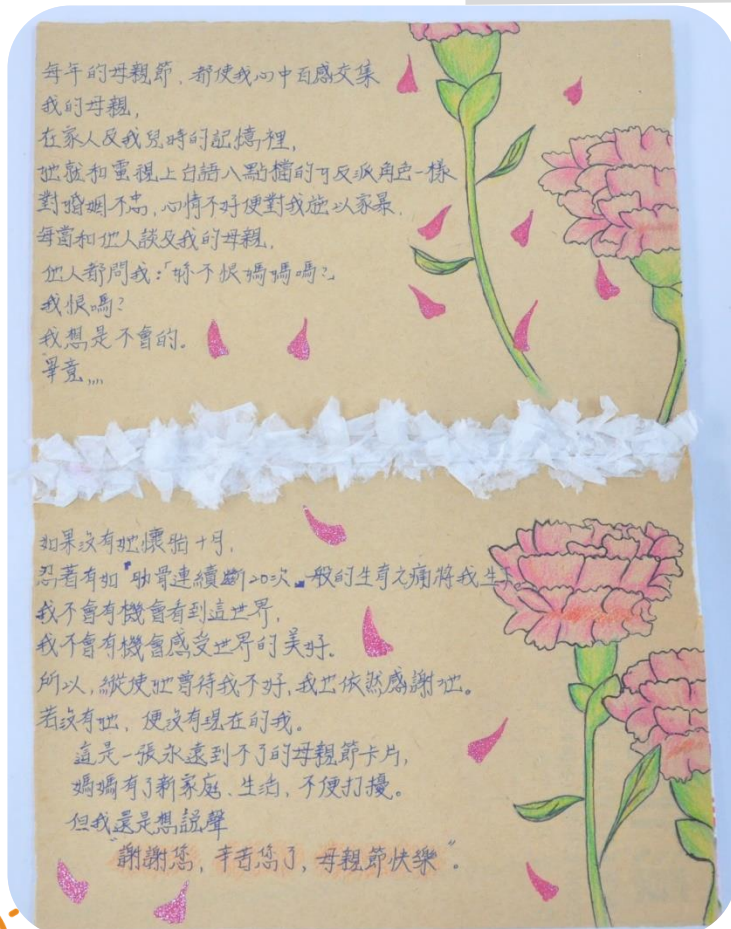 每年的母親節、都使我心中百感交集
我的母親,
在家人及我兒時的記憶裡,
她就和電視上台語八點檔的反派角色一樣
對婚姻不忠,心情不好便對我施以家暴.
每當和他人談及我的母親,
他人都問我:「妳不恨媽媽嗎?」
我恨嗎?
我想是不會的。
畢竟,,,,
如果沒有她懷胎十月,
忍著有如「肋骨連續斷20次」般的生育之痛將我生
我不會有機會看到這世界,
我不會有機會感受世界的美好.
所以,縱使她曾待我不好,我也依然感謝她。
若沒有她、便沒有現在的我。
這是一張永遠到不了的母親節卡片,
媽媽有了新家庭、生活、不便打擾。
但我還是想說聲
"謝謝您,辛苦您了,母親節快樂"。